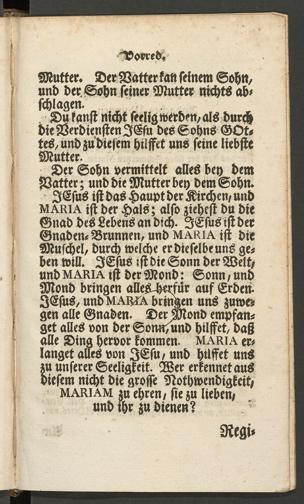 Vorred.
Mutter. Der Vatter kan seinem Sohn,
und der Sohn seiner Mutter nichts ab-
schlagen.
Du kanst nicht seelig werden, als durch
die Verdiensten JEsu des Sohns GOt-
tes, und zu diesem hilffet uns seine liebste
Mutter.
Der Sohn vermittelt alles bey dem
Vatter; und die Mutter bey dem Sohn.
JEsus ist das Haupt der Kirchen, und
MARIA ist der Hals; also ziehest du die
Gnad des Lebens an dich. JEsus ist der
Gnaden-Brunnen, und MARIA ist die
Muschel, durch welche er dieselbe uns ge-
ben will. JEsus ist die Sonn der Welt,
und MARIA ist der Mond: Sonn, und
Mond bringen alles herfür auf Erden.
JEsus, und MARIA bringen uns zuwe-
gen alle Gnaden. Der Mond empfan-
get alles von der Sonn, und hilffet, daß
alle Ding hervor kommen. MARIA er-
langet alles von JEsu, und hilffet uns
zu unserer Seeligkeit. Wer erkennet aus
diesem nicht die grosse Nothwendigkeit,
MARIAM zu ehren, sie zu lieben,
und ihr zu dienen?
Regi-